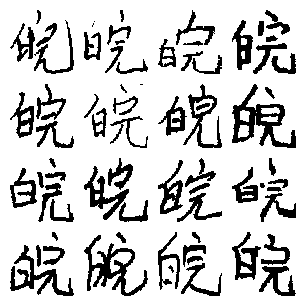 皖皖皖皖
皖皖皖皖
皖皖皖皖
皖皖皖皖